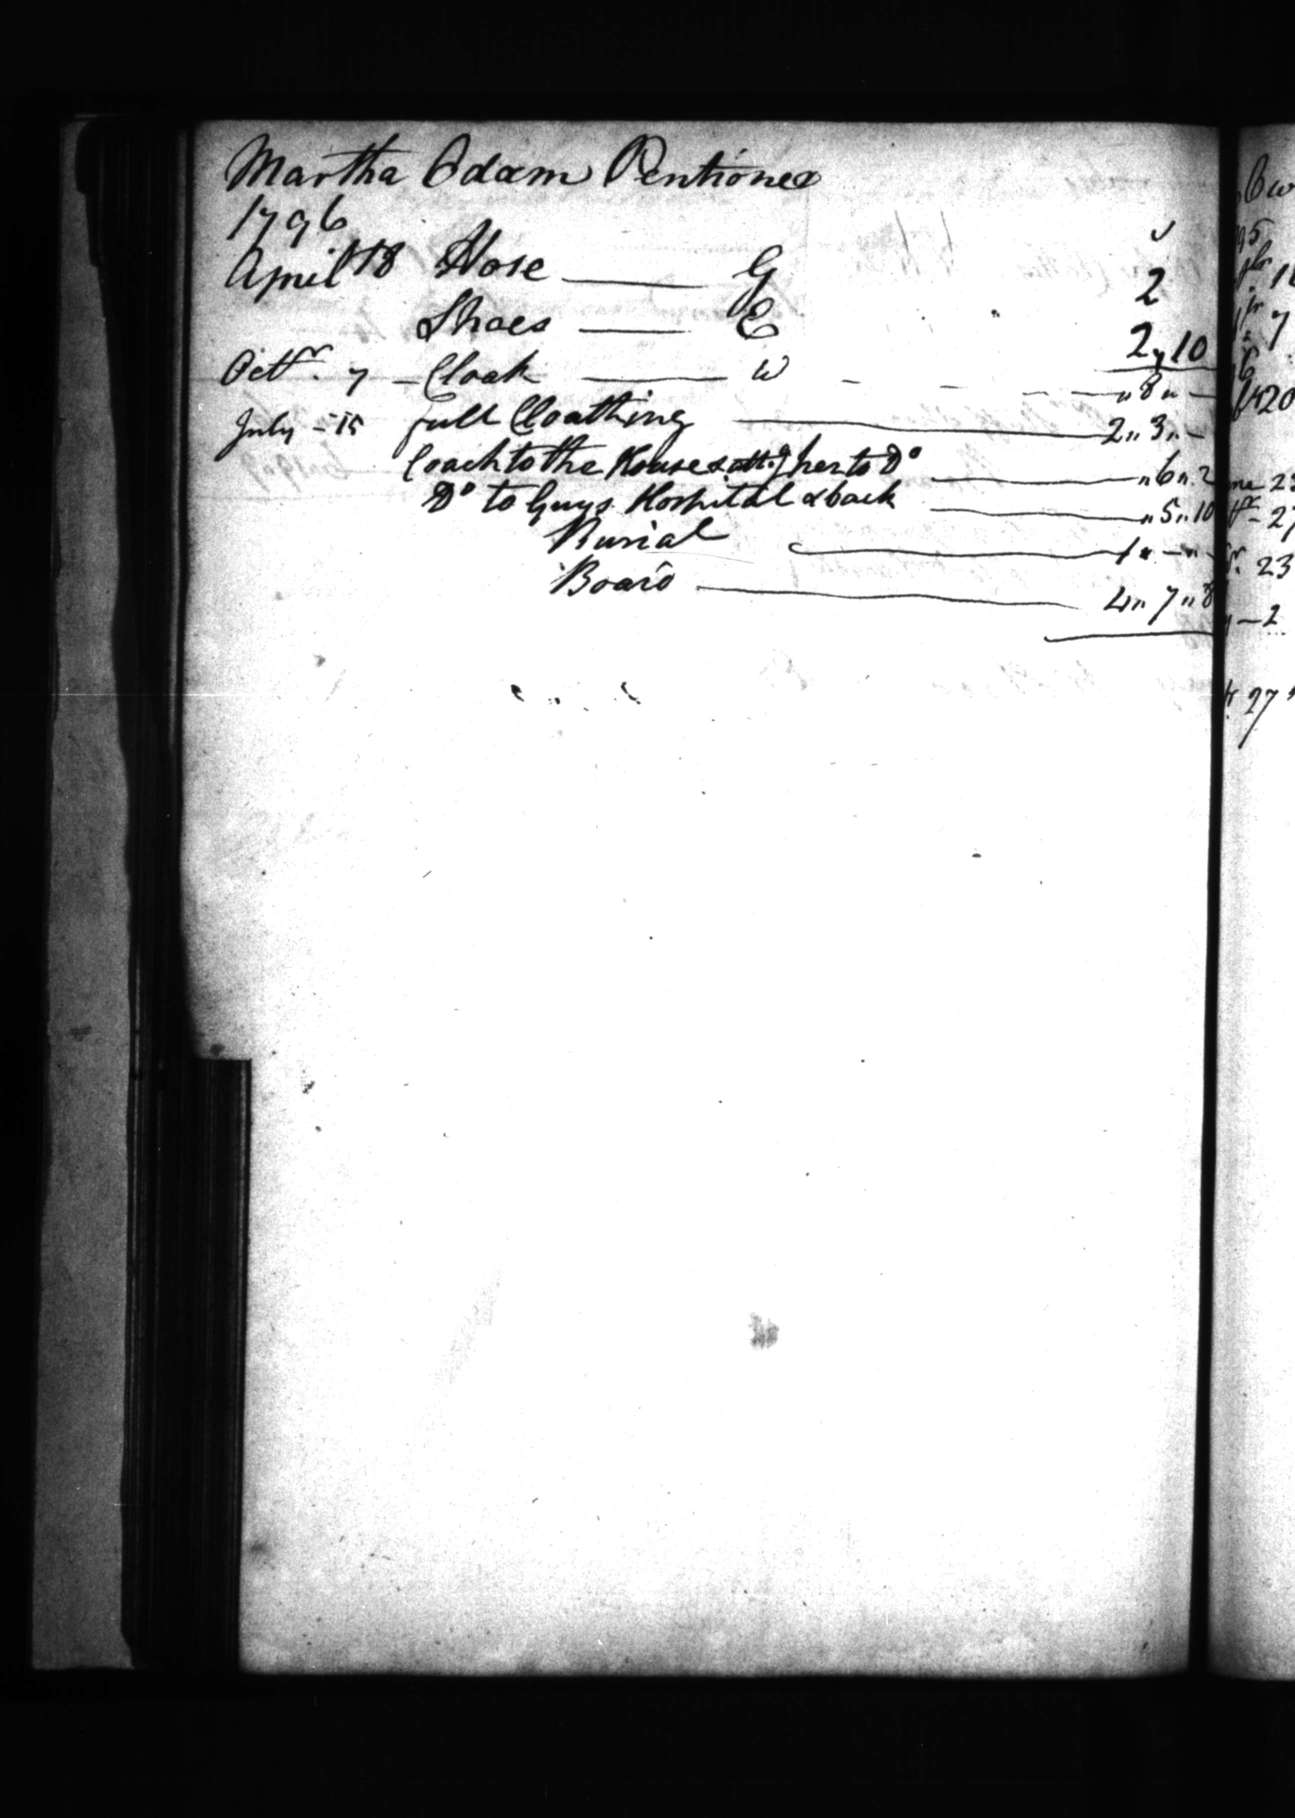 Martha Odam Pentioner
1796
April 18 Hose — G 2
Shoes — E 2 " 10
Octr. 7 — Cloak — W - - - " 8 " -
July - 15 full Cloathing — 2 " 3 " -
Coach to the House & attg her to Do — " 6 " 2
Do to Guys Hospital & back — " 5 " 10
Burial — 1 " - " -
Board — 4 " 7 " 8
95
7
20
23
27
23
- 2
27